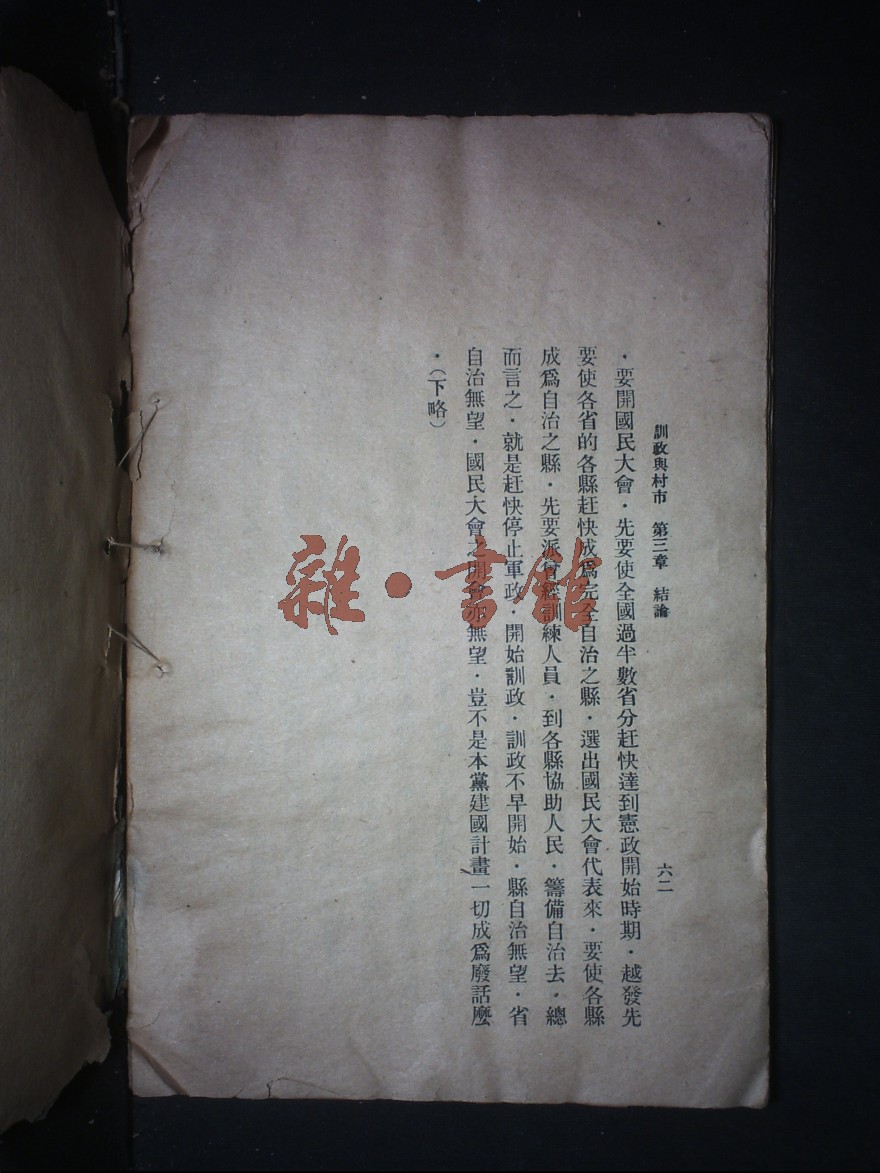 訓政與村市　第三章　結論　六二
．要開國民大會．先要使全國過半數省分赶快達到憲政開始時期．越發先
要使各省的各縣赶快成爲完全自治之縣．選出國民大會代表來．要使各縣
成爲自治之縣．先要派曾經訓練人員．到各縣協助人民．籌備自治去．總
而言之．就是赶快停止軍政．開始訓政．訓政不早開始．縣自治無望．省
自治無望．國民大會之開會亦無望．豈不是本黨建國計畫一切成爲廢話麼
．（下略）
雜．書館